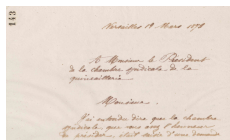 143
Versailles 18 Mars 1878
A Monsieur le Président
de la chambre syndicale de la
quincaillerie.
Monsieur,
J'ai entendu dire que la chambre
syndicale que vous avez l'honneur
de présider, était saisie d'une demande